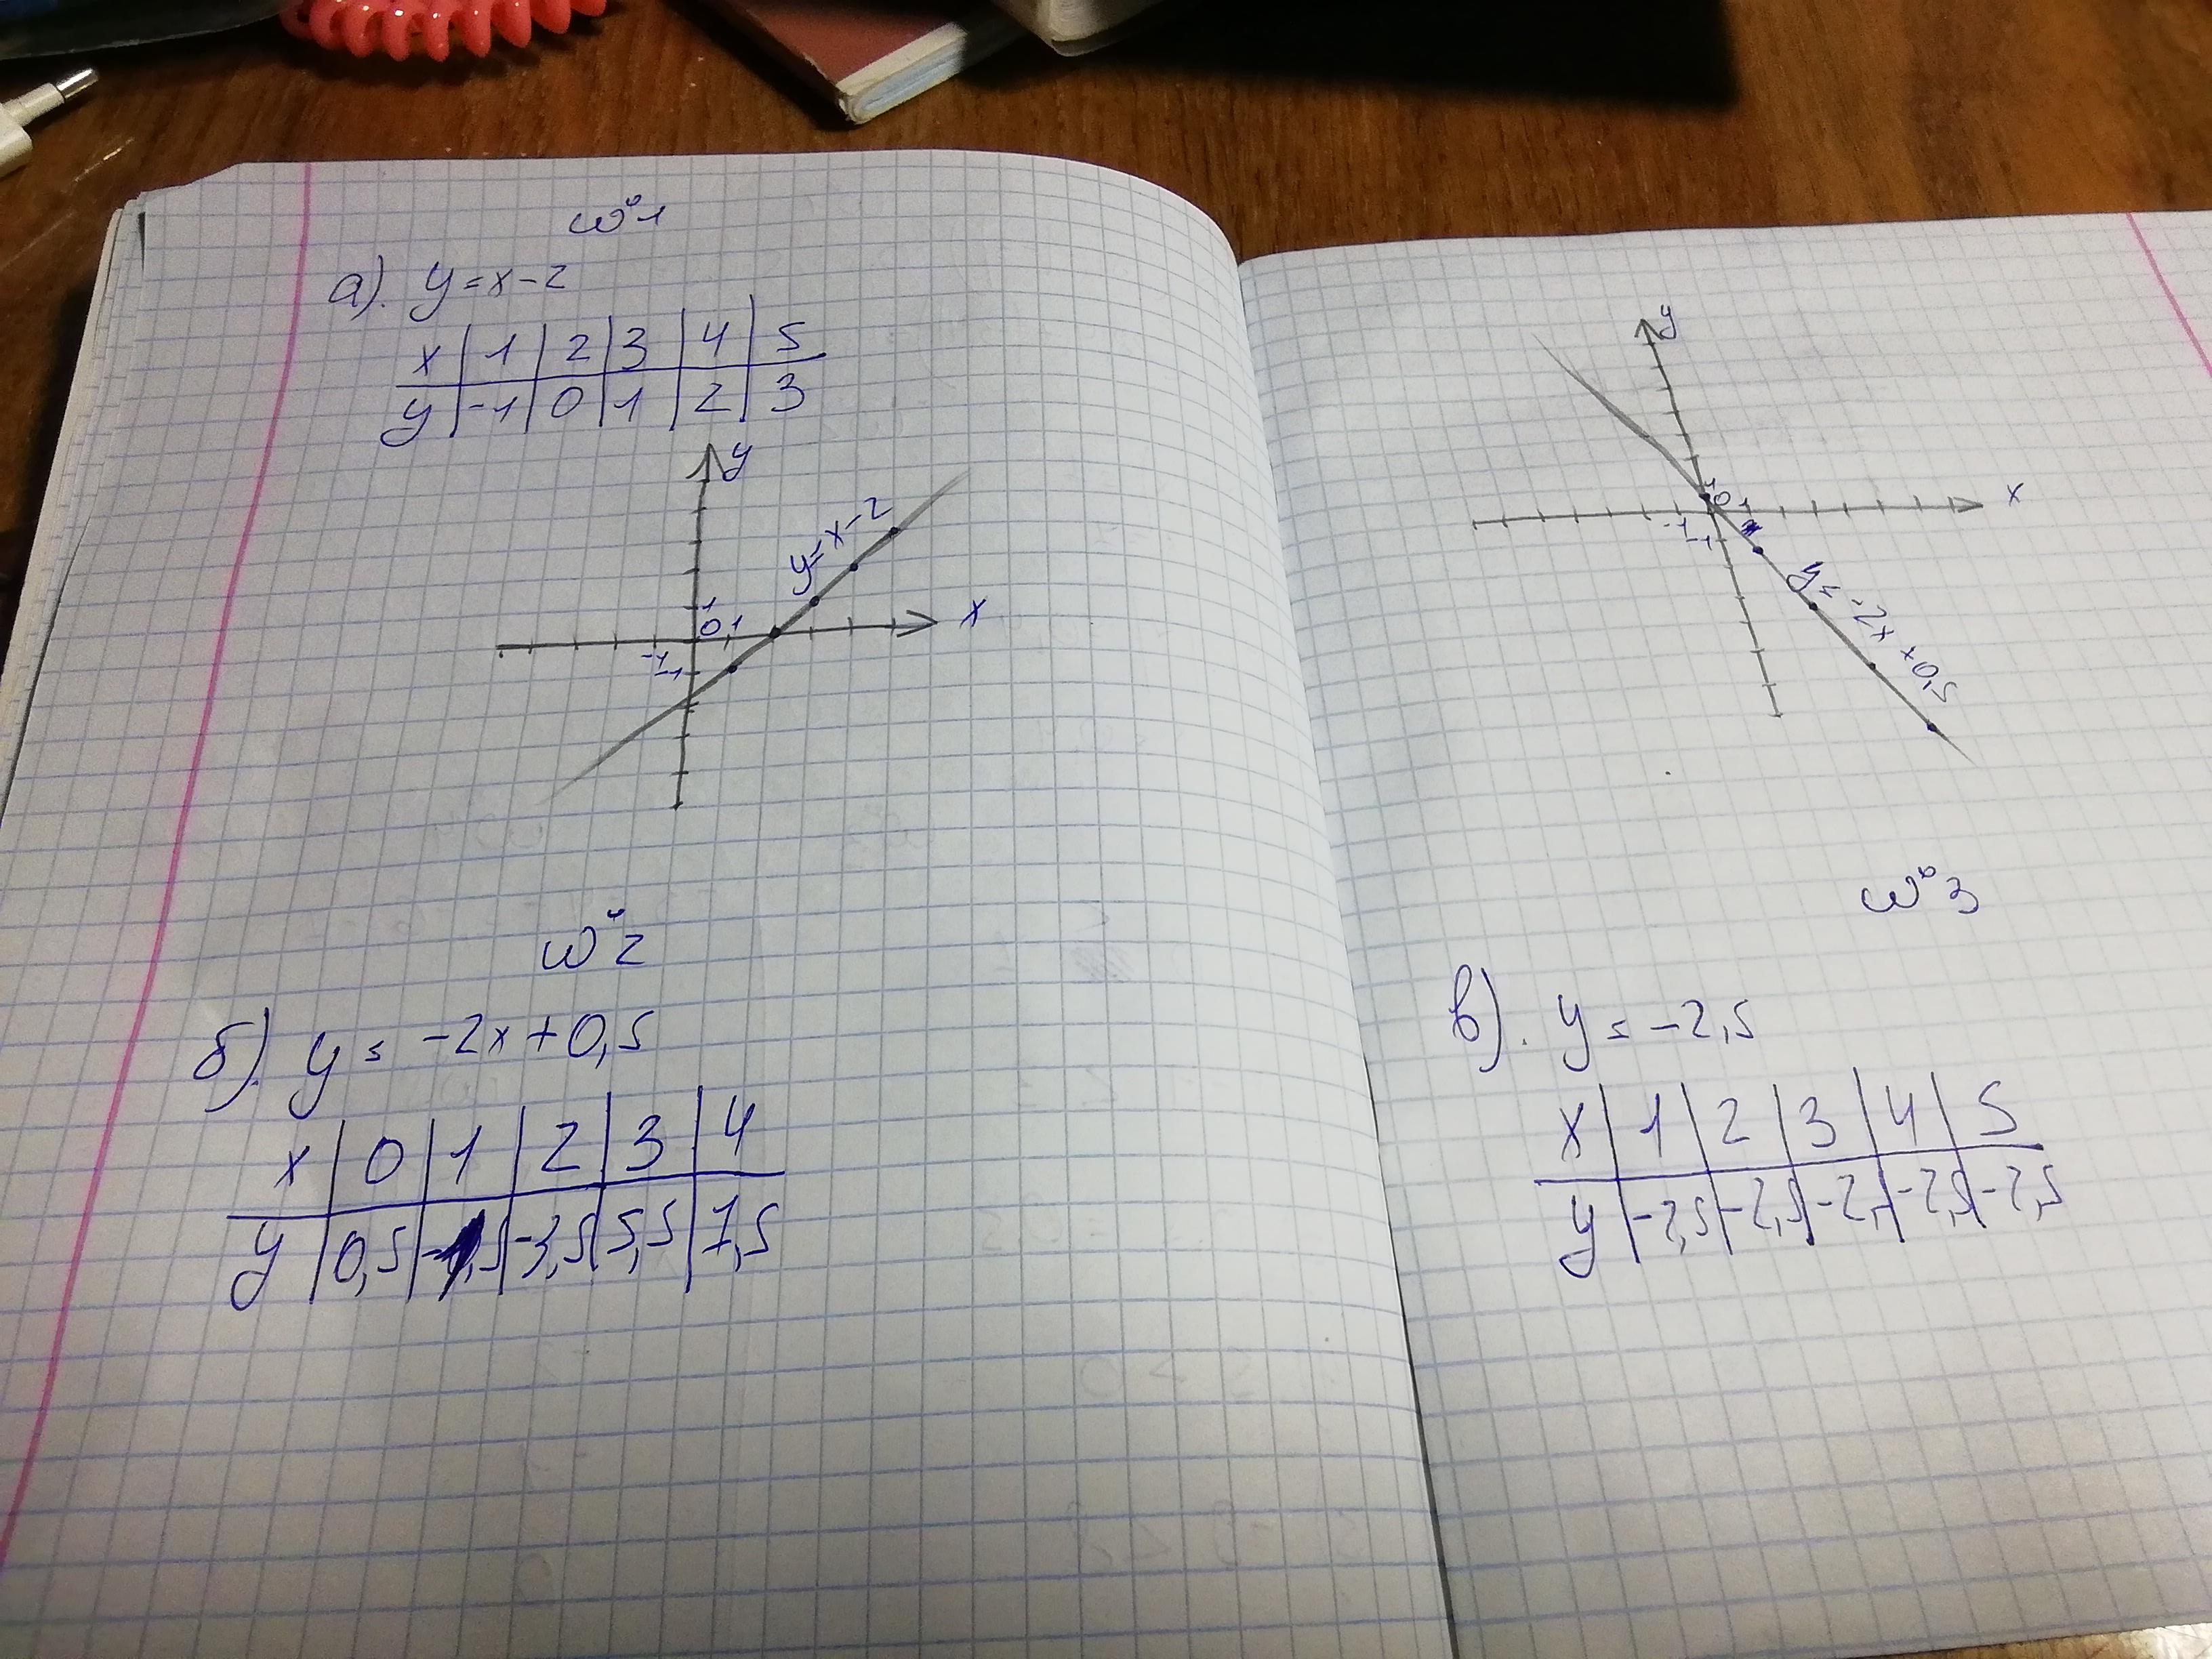 №1
а). y=x-2
x 1 2 3 4 5
y -1 0 1 2 3
y
y=x-2
1
0 1
x
-1
-1
№2
б). y = -2x+0,5
x 0 1 2 3 4
y 0,5 -1,5 -3,5 5,5 7,5
y
1
0 1
x
-1
-1
y = -2x+0,5
№3
в). y = -2,5
x 1 2 3 4 5
y -2,5 -2,5 -2, -2,5 -2,5